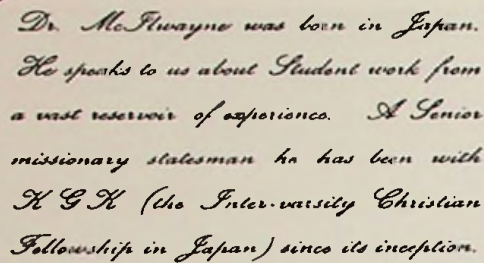 Dr. McIlwayne was born in Japan.
He speaks to us about Student work from
a vast reservoir of experience. A Senior
missionary statesman he has been with
K G K (the Inter-varsity Christian
Fellowship in Japan) since its inception.